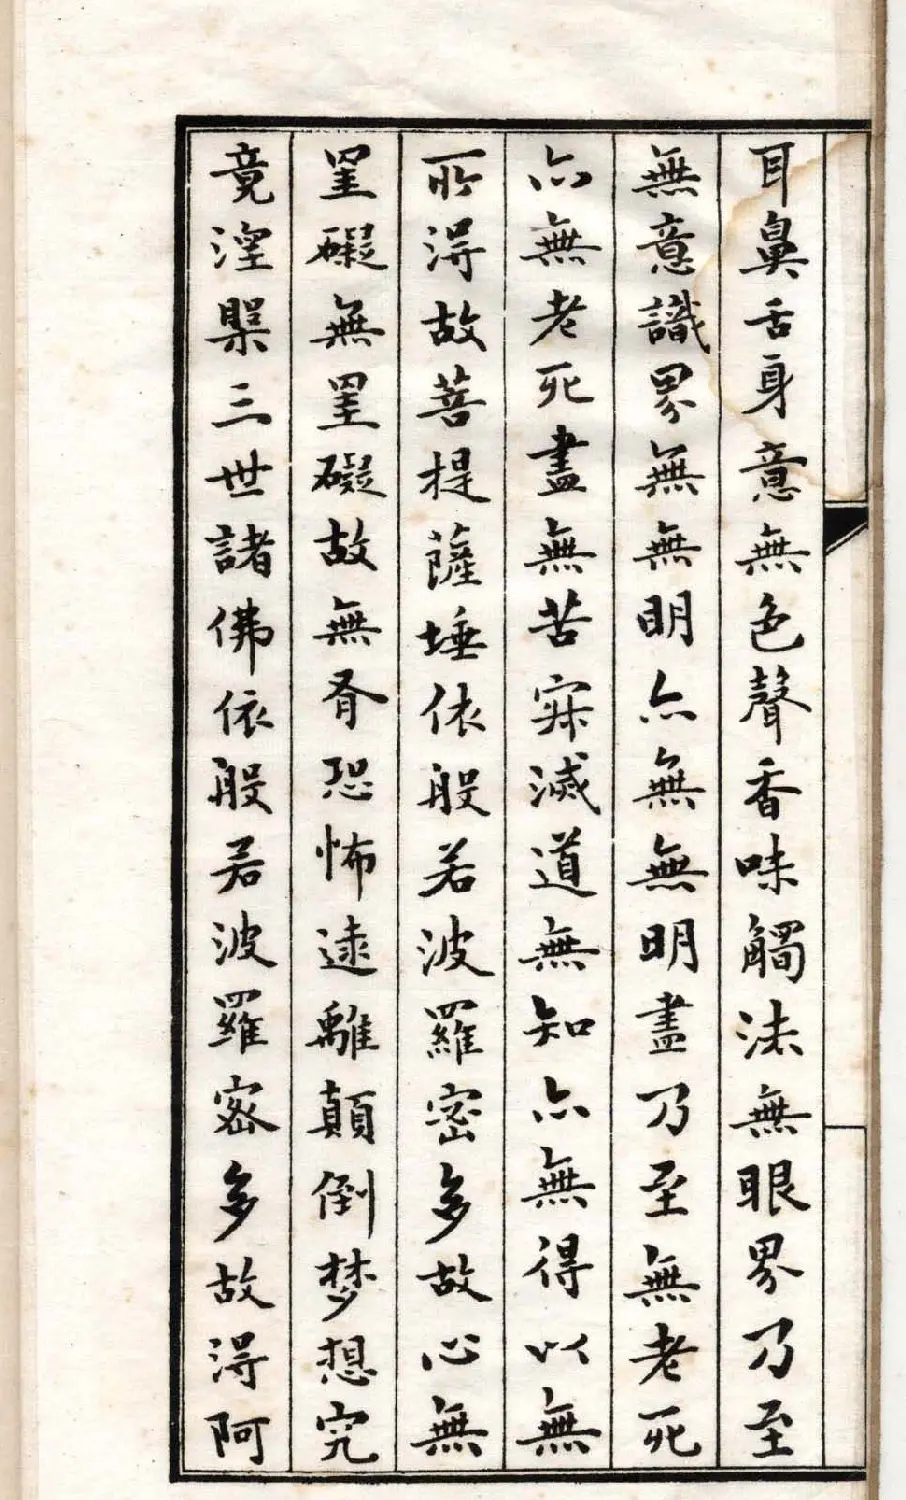 耳鼻舌身意無色聲香味觸法無眼界乃至
無意識界無無明亦無無明盡乃至無老死
亦無老死盡無苦寂滅道無知亦無得以無
所得故菩提薩埵依般若波羅密多故心無
罣礙無罣礙故無有恐怖遠離顛倒梦想究
竟涅槃三世諸佛依般若波羅密多故得阿